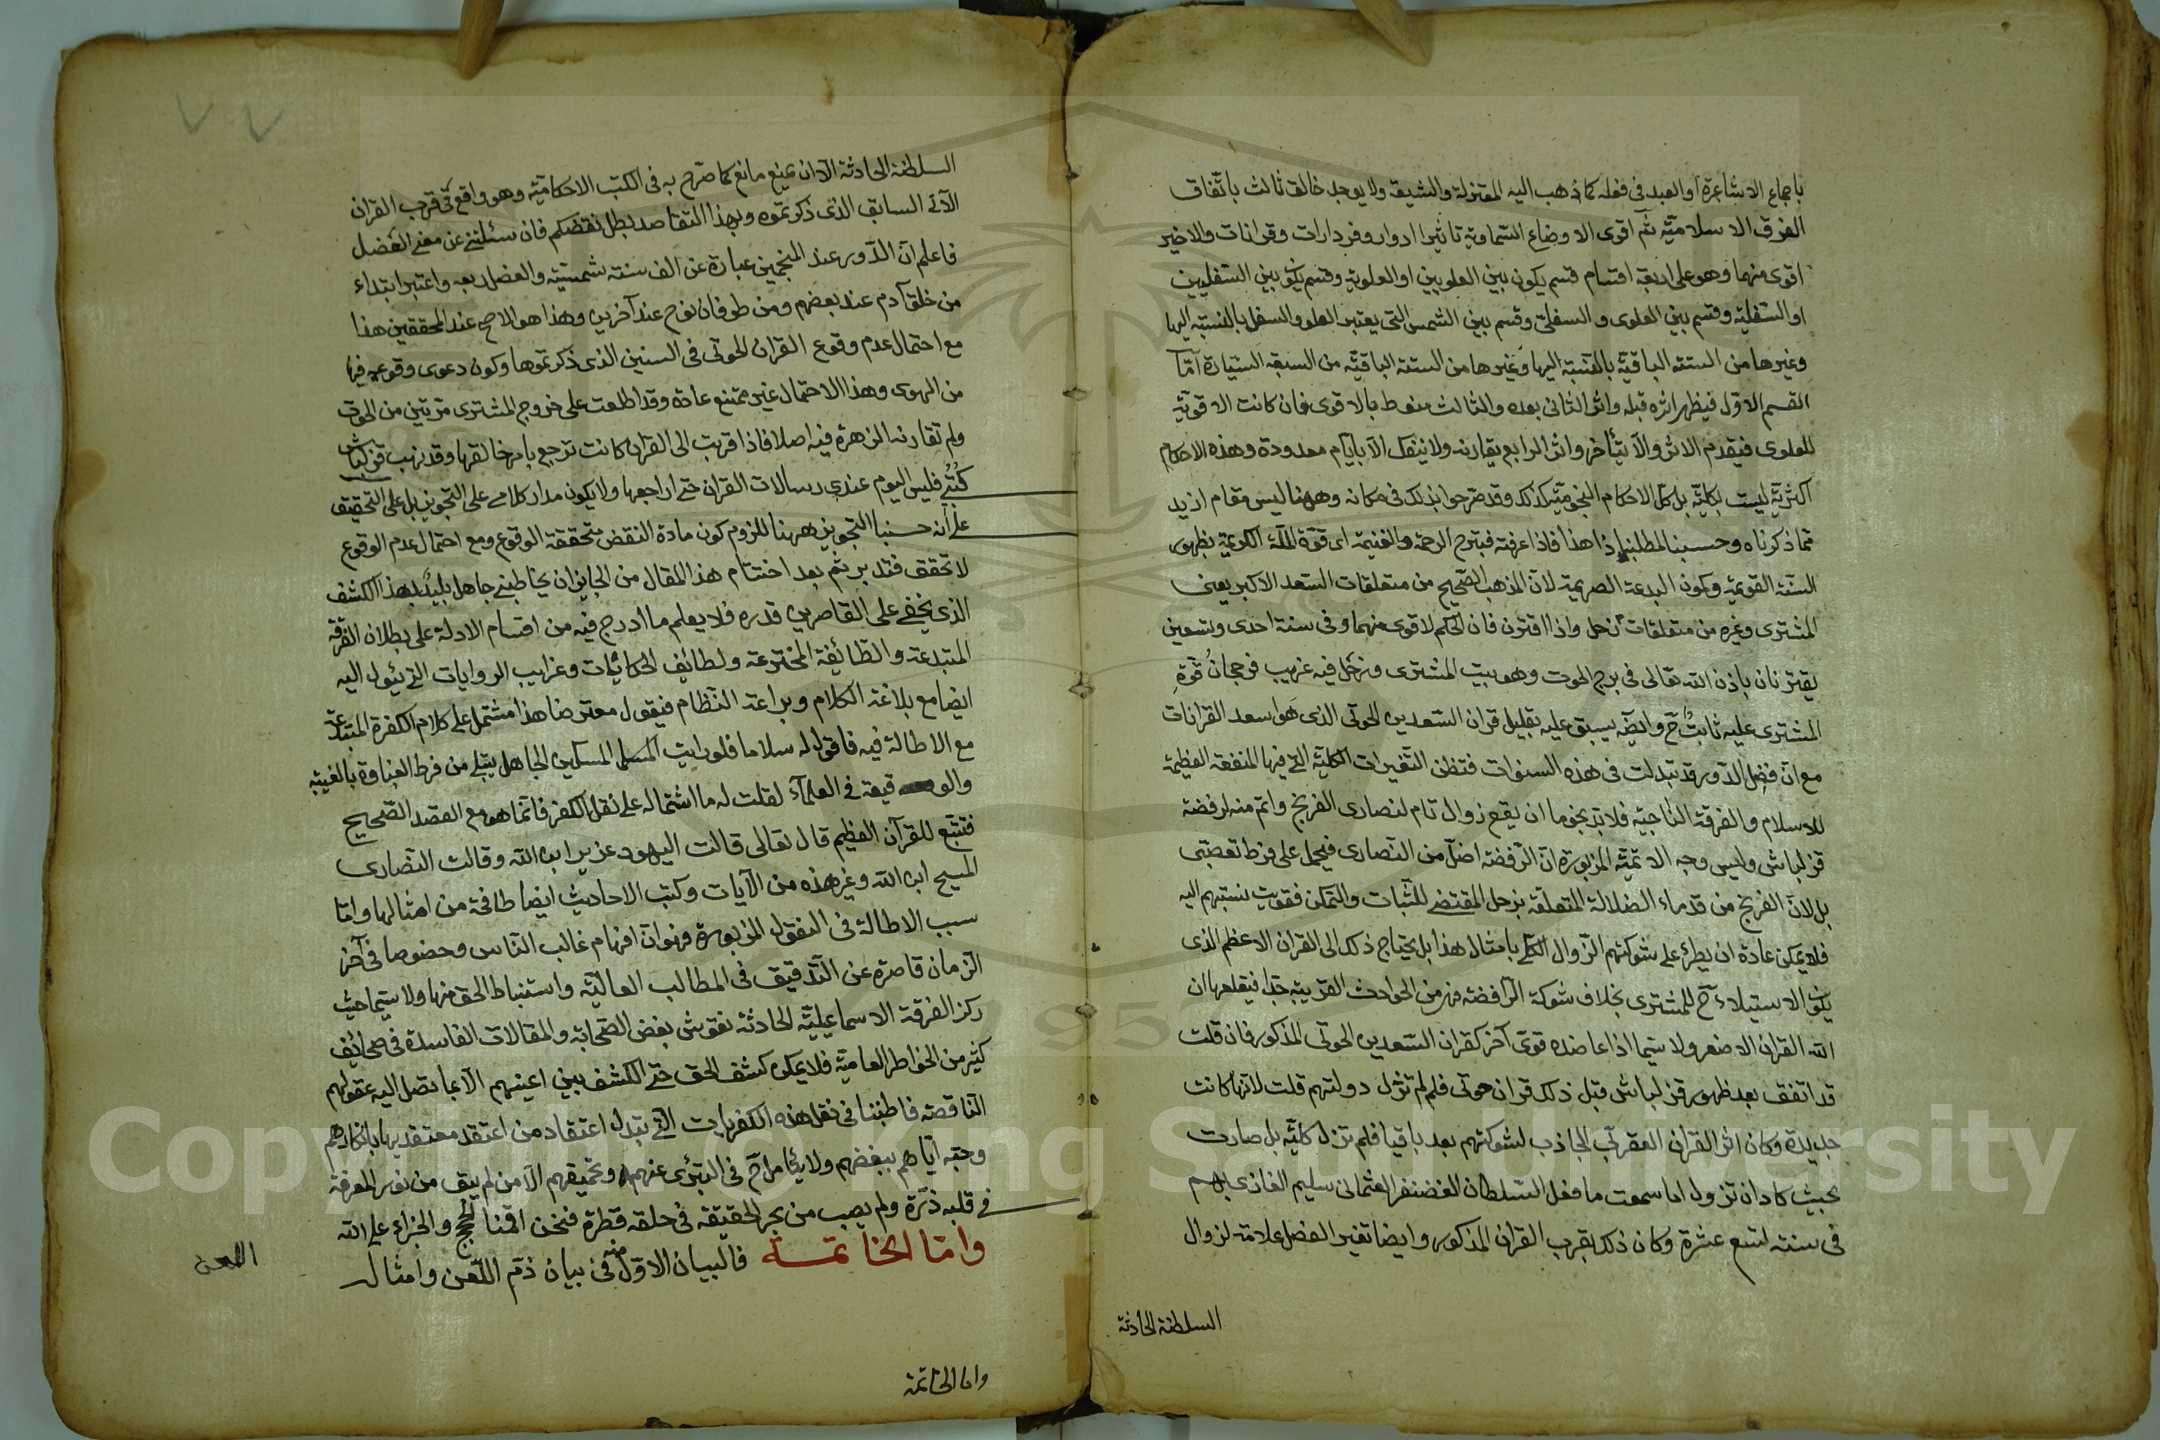 باجماع الاشاعرة او العبد في فعله كما ذهب اليه المعتزلة والشيعة ولا يوجد خالق ثالث باتفاق
الفرق الاسلامية ثم اقوى الاوضاع السماوية تاثيرا ادوار وفردارات وقرانات والاخير
اقوى منهما وهو على اربعة اقسام قسم يكون بين العلويين او العلوية وقسم يكون بين السفليين
او السفلية وقسم بين العلوى والسفلى وقسم بين الشمس التى يعتبر العلو والسفل بالنسبة اليها
وغيرها من الستة الباقية بالنسبة اليها وغيرها من الستة الباقية من السبعة السيارة امّا
القسم الاول فيظهر اثره قبله واثر الثانى بعده والثالث منوط بالاقوى فان كانت الاقوية
للعلوى فيقدم الاثر والا يتأخر واثر الرابع يقارنه ولا ينفك الا بايام معدودة وهذه الاحكام
اكثرية ليست بكلية بل كل الاحكام النجومية كذلك وقد صرحوا بذلك فى مكانه وههنا ليس مقام ازيد
مما ذكرناه وحسبنا لمطلبنا ذا هذا فاذا عرفته فبترح الرحمة والغنيمة اى قوة الملة الكريمة بظهور
السنة القويمة وكون البدعة الصريمة لان المذهب الصحيح من متعلقات السعد الاكبر يعنى
المشترى وغيره من متعلقات زحل واذا اقترن فان الحكم لاقوى منهما وفى سنة احدى وتسعين
يقترنان باذن الله تعالى فى برج الحوت وهو بيت المشترى وزحل فيه غريب فرجحان قوة
المشترى عليه ثابت ح وايضا يسبق عليه بقليل قران السعدين الحوتى الذى هو اسعد القرانات
مع ان فضل الدور قد تبدلت فى هذه السنوات فتظن التغيرات الكلية التى فيها المنفعة العظيمة
للاسلام والفرقة الناجية فلابد بنحو ما ان يقع زوال تام لنصارى الفرنج واتم منه لرفضة
قزلباش وليس وجه الاتمية المزبورة ان الرفضة اضل من النصارى فيحمل على فرط تعصبى
بل لان الفرنج من قدماء الضلالة المتعلقة بزحل المقتضى للثبات والتمكن فقويت نسبتهم اليه
فلا يمكن عادة ان يطرئ على شوكتهم الزوال الكلى بامثال هذا بل يحتاج ذلك الى القران الاعظم الذى
يكون الاستيلاء ح للمشترى بخلاف شوكة الرافضة فهو من الحوادث القريبة جدا فيقلعها ان
الله القران الاصغر ولا سيما اذا عاضده قوى آخر كقران السعدين الحوتى المذكور فان قلت
قد اتفق بعد ظهور قزلباش قبل ذلك قران حوتى فلم لم تزل دولتهم قلت لانها كانت
جديدة وكان اثر القران العقربى الجاذب لشوكتهم بعد باقيا فلم تزل كلية بل صارت
بحيث كاد ان تزول اما سمعت ما فعل السلطان الغضنفر العثمانى سليم الغازى بهم
فى سنة تسع عشرة وكان ذلك بقرب القران المذكور وايضا تغير الفضل علامة لزوال
السلطنة الحادثة
السلطنة الحادثة الا ان يمنع مانع كما صرح به فى الكتب الاحكامية وهو واقع فى قرب القران
الآتى السابق الذى ذكرتموه وبهذا التقاصد بطل نقضكم فان سئلتنى عن معنى الفضل
فاعلم ان الدور عند المنجمين عبارة عن الف سنة شمسية والفضل ربعه واعتبر ابتداء
من خلق آدم عند بعضهم ومن طوفان نوح عند آخرين وهذا هو الاصح عند المحققين هذا
مع احتمال عدم وقوع القران الحوتى فى السنين الذى ذكرتموها وكون دعوى وقوعه فيها
من الهوى وهذا الاحتمال غير ممتنع عادة وقد اطلعت على خروج المشترى مرتين من الحوت
ولم تقارنه الزهرة فيه اصلا فاذا قربت الى القران كانت ترجع بامر خالقها وقد نهب قزلباش
كتبى فليس اليوم عندى رسالات القران حتى اراجعها ولا يكون مدار كلامى على التجويز بل على التحقيق
على انه حسبنا التجويز ههنا للزوم كون مادة النقض متحققة الوقوع ومع احتمال عدم الوقوع
لا تحقق فتدبر ثم بعد اختتام هذا المقال من الجايز ان يخاطبنى جاهل بليد بهذا الكشف
الذى يخفى على القاصرين قدره فلا يعلم ما ادرج فيه من اقسام الادلة على بطلان الفرقة
المبتدعة والطائفة المخترعة ولطائف الحكايات وغرايب الروايات التى يئول اليه
ايضا مع بلاغة الكلام وبراعة النظام فيقول معترضا هذا مشتمل على كلام الكفرة المبتدعة
مع الاطالة فيه فاقول له سلاما فلو رايت المسلم المسكين الجاهل يبتلى من فرط الغباوة بالغيبة
والوقيعة فى العلماء لقلت له ما اشتماله على نقل الكفر فانما هو مع القصد الصحيح
فتتبع للقرآن العظيم قال تعالى قالت اليهود عزير ابن الله وقالت النصارى
المسيح ابن الله وغير هذه من الآيات وكتب الاحاديث ايضا طافحة من امثالها واما
سبب الاطالة فى النقول المزبورة فهو ان افهام غالب الناس وخصوصا فى آخر
الزمان قاصرة عن التدقيق فى المطالب العالية واستنباط الحق منها ولا سيما حيث
ركز الفرقة الاسماعيلية الحادثة نقوش بغض الصحابة والمقالات الفاسدة فى صحايف
كثير من الخواطر العامية فلا يمكن كشف الحق حق الكشف بين اعينهم الا بما تصل اليه عقولهم
الناقصة فاطنبنا فى نقل هذه الكفريات التى يتبدل اعتقاد من اعتقد معتقديها بانكارهم
وحبه اياهم ببغضهم ولا يتأمل ح فى التبرى عنهم وتحميقهم الا من لم يبق من نور المعرفة
فى قلبه ذرة ولم يصب من بحر الحقيقة فى حلقه قطرة فنحن اقمنا الحجج والجزاء على الله
واما الخاتمـــة فالبيان الاول منه فى بيان ذم اللعن وامثاله
اللعن
واما الخاتمة
٧٧
Copyright © King Saud University